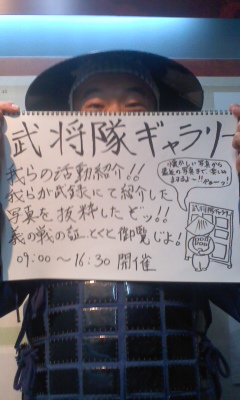 武将隊ギャラリー
我らの活動紹介!!
我らが武録にて紹介した
写真を抜粋したどッ!!
我の戦の証、とくと御覧じよ!
09:00〜16:30 開催
懐かしい写真から
最近の写真まで、楽しめ
ますぞよ〜!!
武将隊ギャラリー